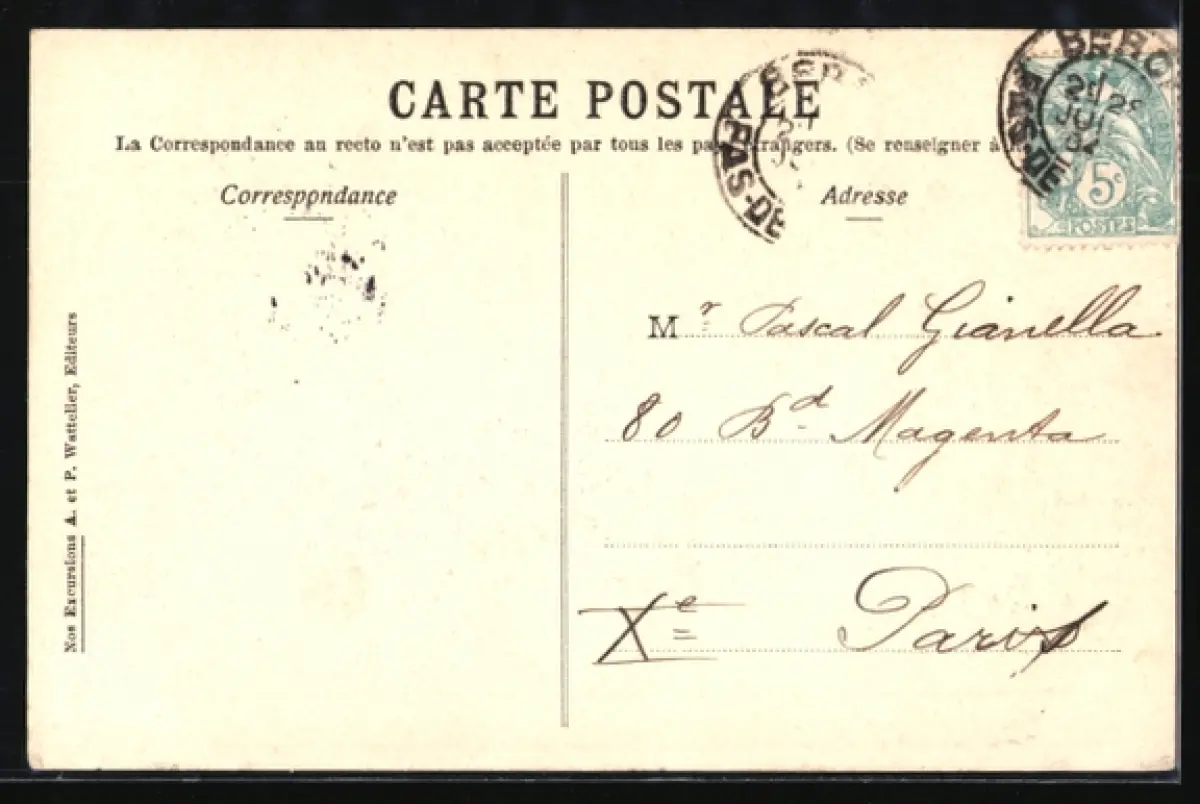 CARTE POSTALE
La Correspondance au recto n'est pas acceptée par tous les pays étrangers. (Se renseigner à
Correspondance
Adresse
BERC
PAS-DE
JUI
04
5c
POSTES
PAS-DE
Mr Pascal Gianella
80 Bd Magenta
Xe Paris
Nos Excursions A. et P. Wattelier, Editeurs